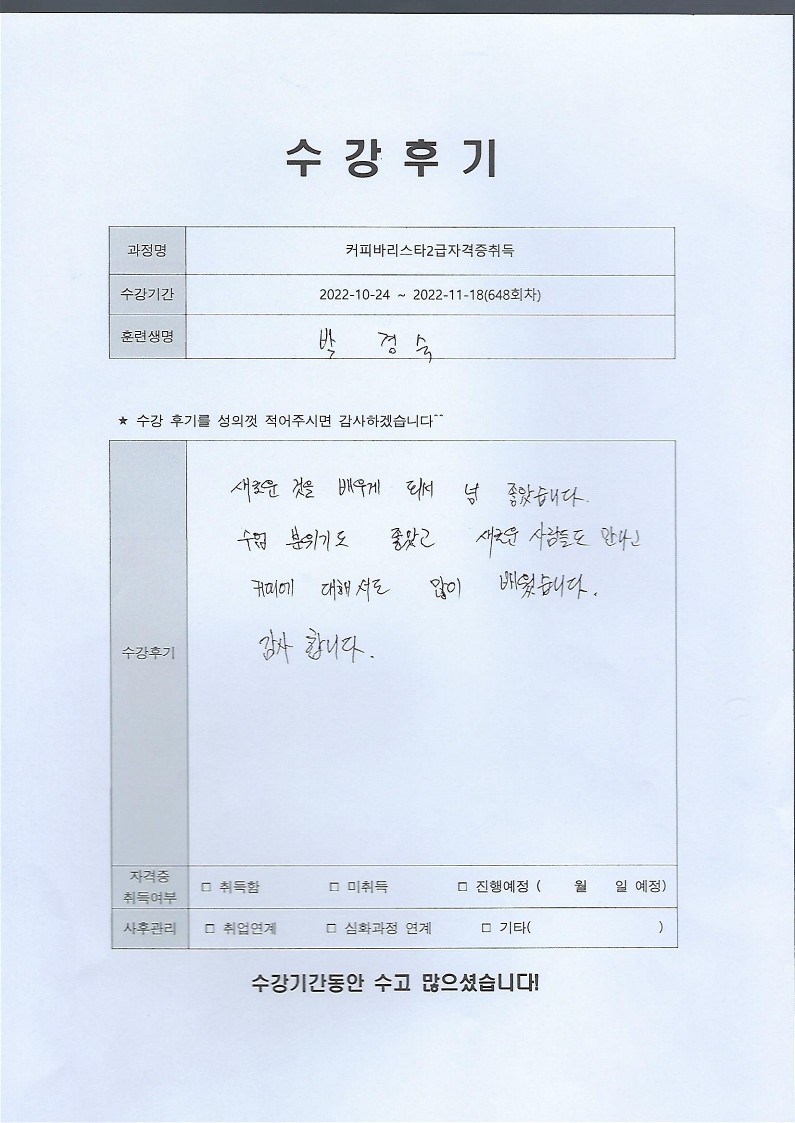 수강후기
과정명 커피바리스타2급자격증취득
수강기간 2022-10-24 ~ 2022-11-18(648회차)
훈련생명 박 경 숙
★ 수강 후기를 성의껏 적어주시면 감사하겠습니다^^
새로운 것을 배우게 되서 넘 좋았습니다.
수업 분위기도 좋았고 새로운 사람들도 만나고
커피에 대해서도 많이 배웠습니다.
감사 합니다.
수강후기
자격증
취득여부 □ 취득함 □ 미취득 □ 진행예정 ( 월 일 예정)
사후관리 □ 취업연계 □ 심화과정 연계 □ 기타( )
수강기간동안 수고 많으셨습니다!